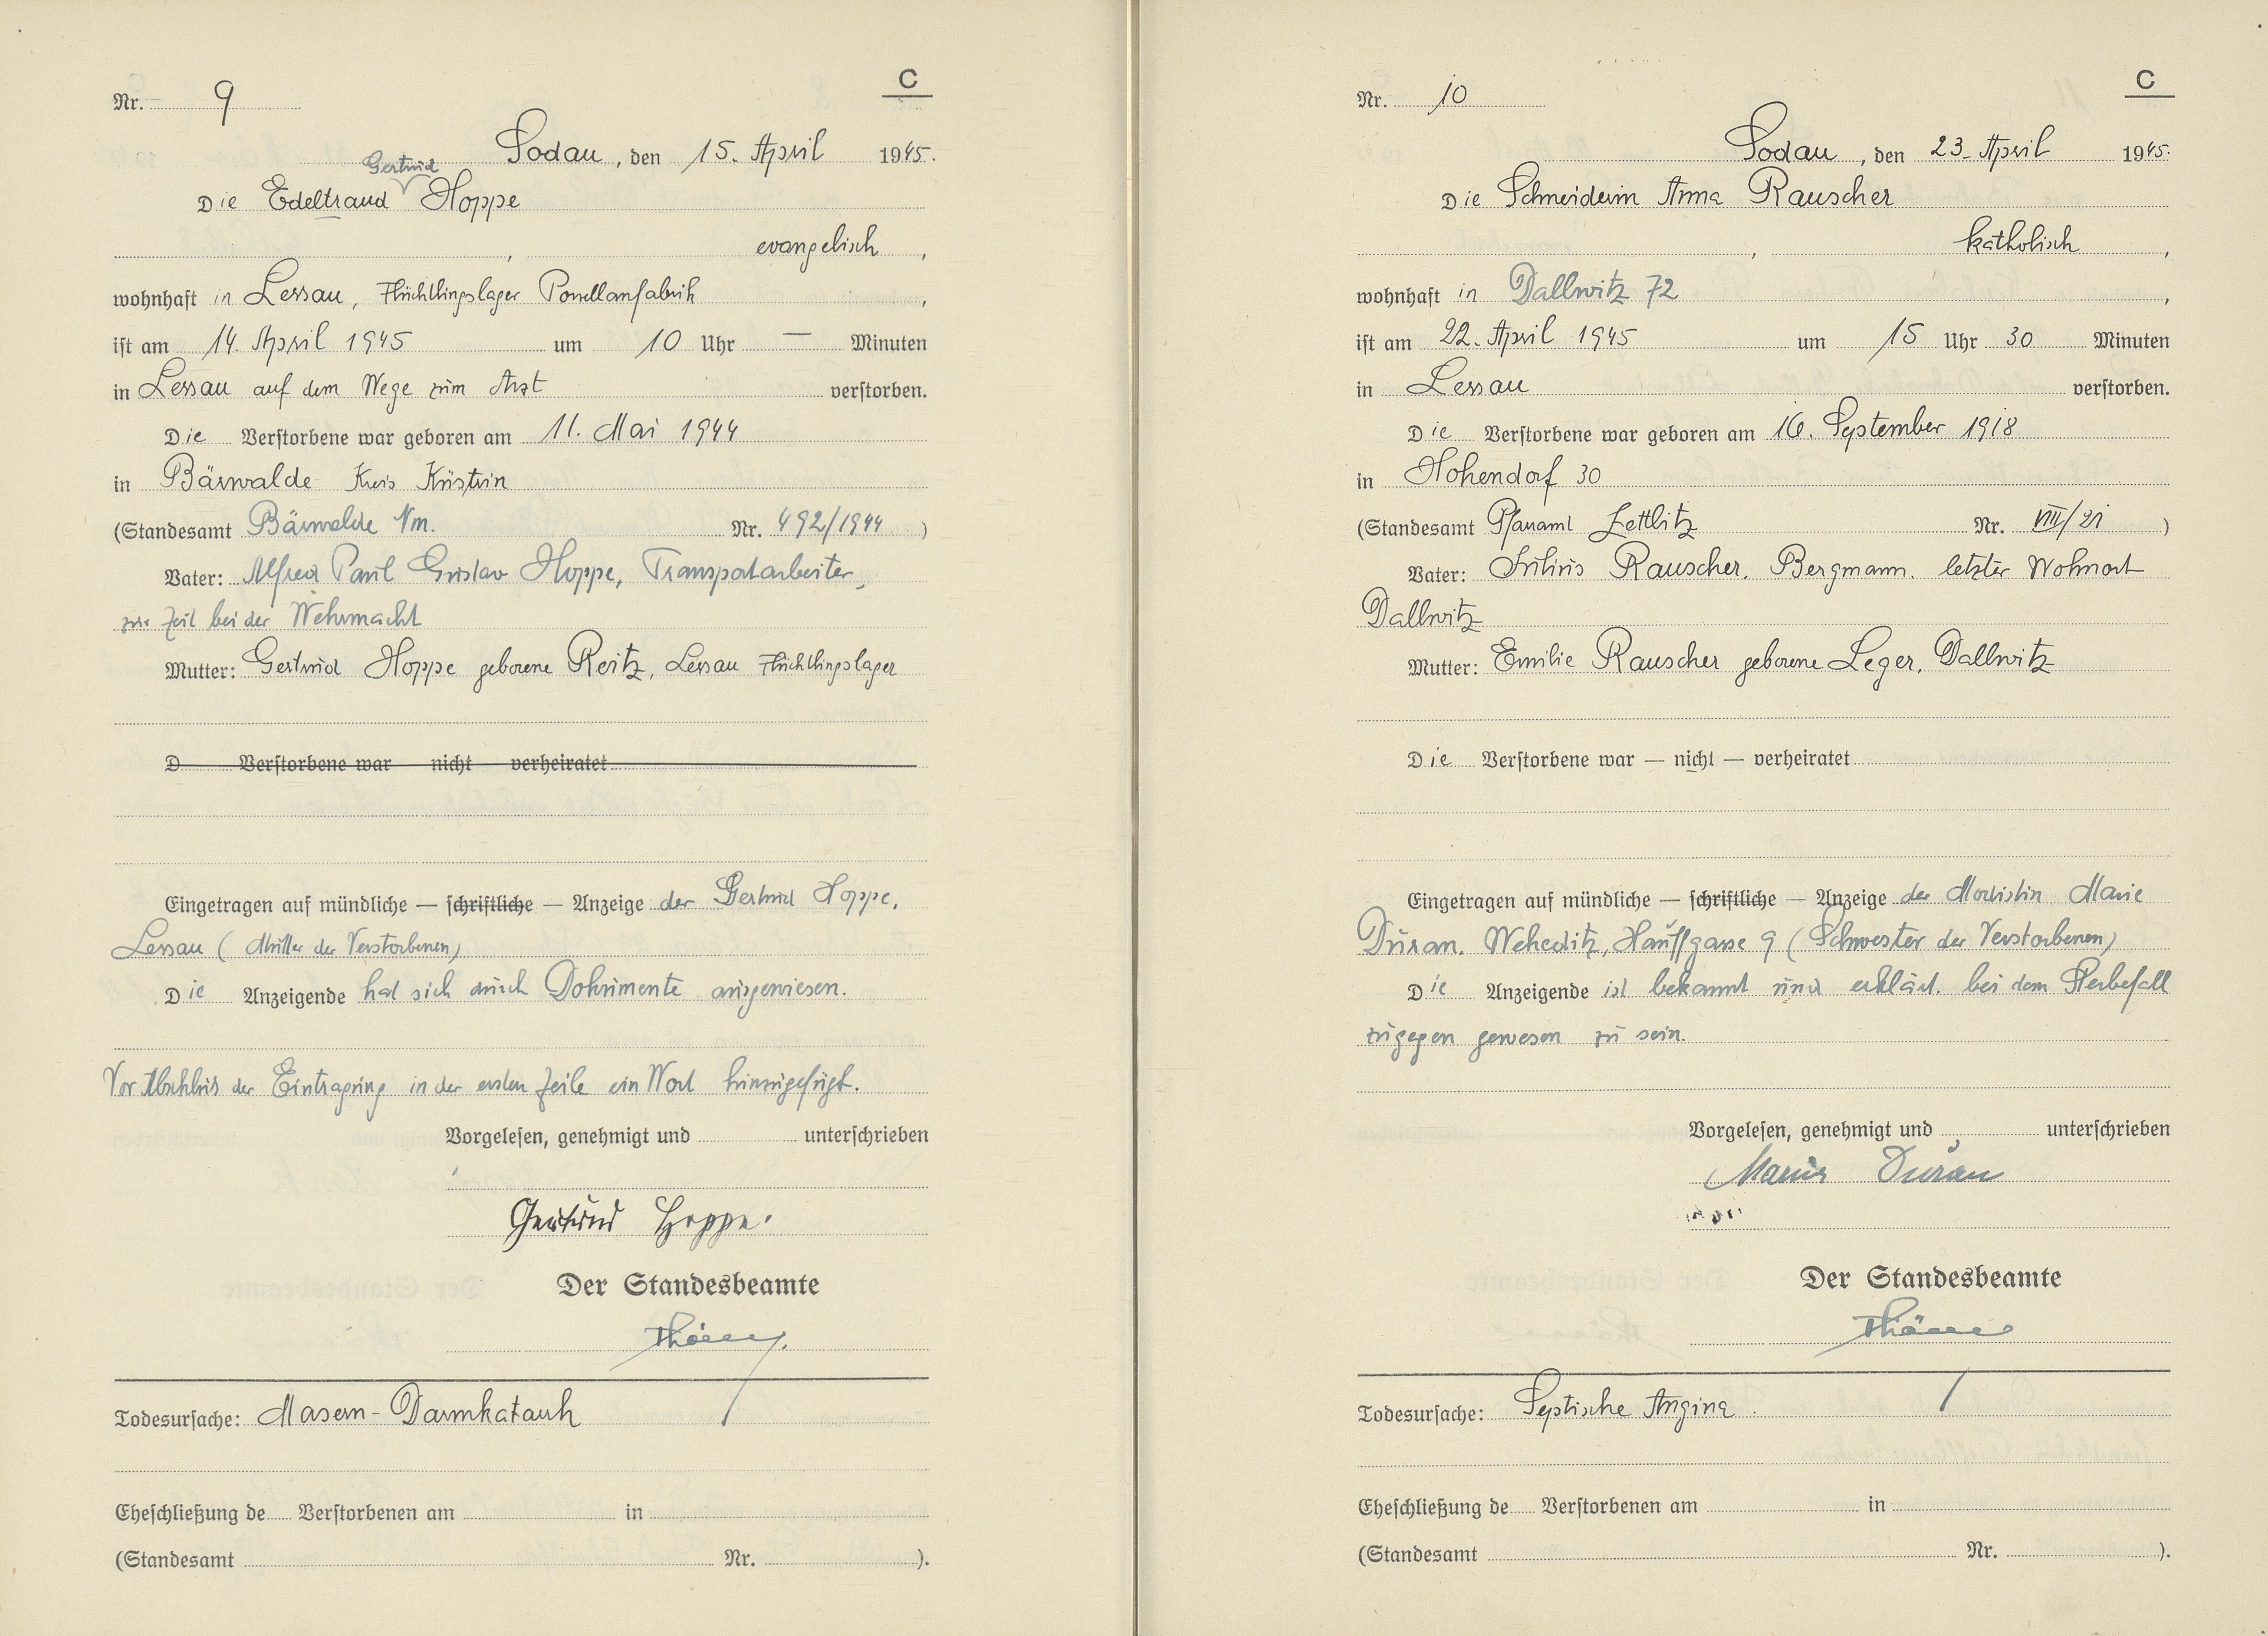 C
Nr. 9
Sodau, den 15. April 1945.
Gertrud
Die Edeltraud Hoppe
evangelisch,
wohnhaft in Lessau, Flüchtlingslager Porzellanfabrik,
ist am 14. April 1945 um 10 Uhr — Minuten
in Lessau auf dem Wege zum Arzt verstorben.
Die Verstorbene war geboren am 11. Mai 1944
in Bärwalde Kreis Küstrin
(Standesamt Bärwalde Nm. Nr. 492/1944)
Vater: Alfred Paul Gustav Hoppe, Transportarbeiter,
zur Zeit bei der Wehrmacht
Mutter: Gertrud Hoppe geborene Reitz, Lessau Flüchtlingslager
D Verstorbene war nicht verheiratet
Eingetragen auf mündliche — schriftliche — Anzeige der Gertrud Hoppe,
Lessau (Mutter der Verstorbenen)
Die Anzeigende hat sich durch Dokumente ausgewiesen.
Vor Abschluß der Eintragung in der ersten Zeile ein Wort hinzugefügt.
Vorgelesen, genehmigt und unterschrieben
Gertrud Hoppe.
Der Standesbeamte
Todesursache: Masern-Darmkatarrh
Eheschließung de Verstorbenen am in
(Standesamt Nr. ).
C
Nr. 10
Sodau, den 23. April 1945.
Die Schneiderin Anna Rauscher
, katholisch,
wohnhaft in Dallwitz 72,
ist am 22. April 1945 um 15 Uhr 30 Minuten
in Lessau verstorben.
Die Verstorbene war geboren am 16. September 1918
in Hohendorf 30
(Standesamt Pfarramt Zettlitz Nr. VIII/21)
Vater: Julius Rauscher, Bergmann, letzter Wohnort
Dallwitz
Mutter: Emilie Rauscher geborene Leger, Dallwitz
Die Verstorbene war — nicht — verheiratet
Eingetragen auf mündliche — schriftliche — Anzeige der Modistin Marie
Duran, Weheditz, Hauffgasse 9 (Schwester der Verstorbenen)
Die Anzeigende ist bekannt und erklärt, bei dem Sterbefall
zugegen gewesen zu sein.
Vorgelesen, genehmigt und unterschrieben
Marie Duran
Der Standesbeamte
Todesursache: Septische Angina
Eheschließung de Verstorbenen am in
(Standesamt Nr. ).